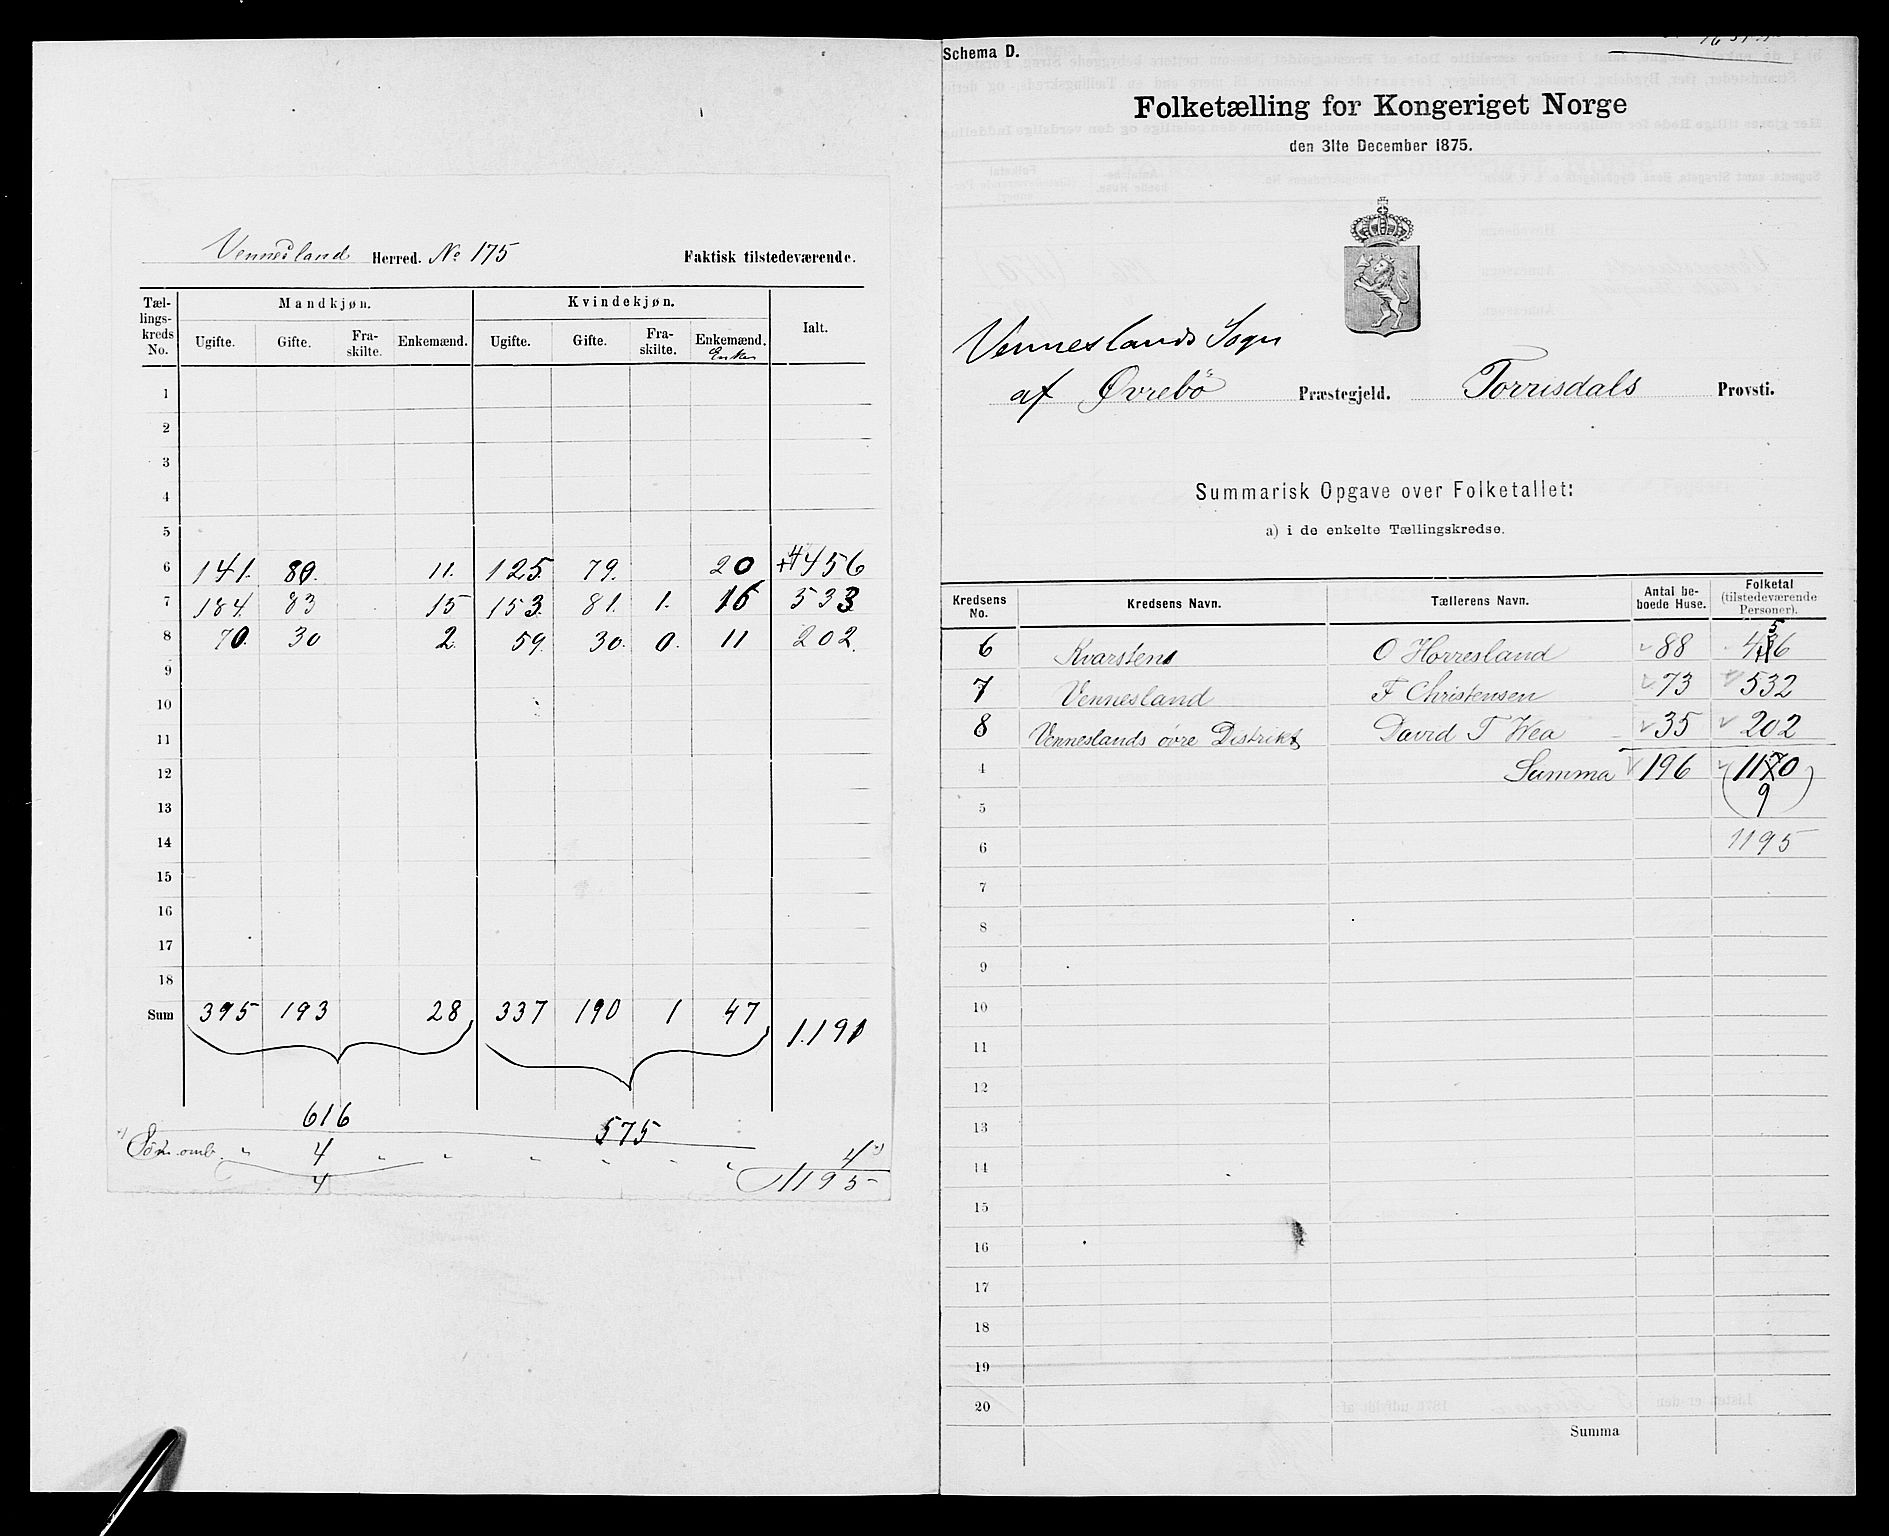 Vennesland Herred. No 175 Faktisk tilstedeværende.
Tællingskreds No. Mandkjøn. Kvindekjøn. Ialt.
Ugifte. Gifte. Fraskilte. Enkemænd. Ugifte. Gifte. Fraskilte. Enkemænd.
Enker
1
2
3
4
5
6 141. 80. 11. 125. 79. 20 456
7 184. 83 15 153. 81. 1. 16 533
8 70. 30 2. 59. 30. 0. 11 202.
9
10
11
12
13
14
15
16
17
18
Sum 395 193 28 337 190 1 47 1.191
616 575
4 4
4 1195
Schema D.
Folketælling for Kongeriget Norge
den 31te December 1875.
Venneslands Sogn
af Øvrebö Præstegjeld. Torrisdals Provsti.
Summarisk Opgave over Folketallet:
a) i de enkelte Tællingskredse.
Kredsens No. Kredsens Navn. Tællerens Navn. Antal beboede Huse. Folketal (tilstedeværende Personer).
6 Kvarstens O Horresland 88 456
7 Vennesland F Christensen 73 532
8 Venneslands øvre Distrikt David T Wea 35 202
4 Summa 196 1190
5
6 1195
7
8
9
10
11
12
13
14
15
16
17
18
19
20
Summa